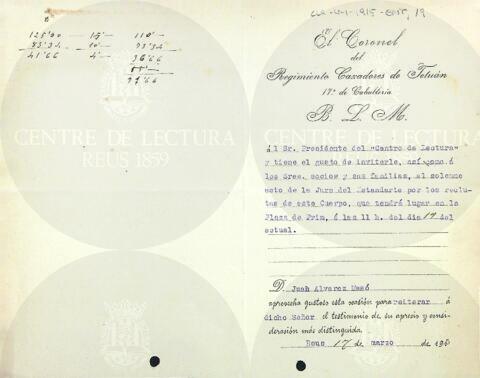 125'00 15'— 110'—
83'34 10'— 93'34
41'66 4'— 96'66
97'66
CLR-U-1-1915-CORR, 19
El Coronel
del
Regimiento Cazadores de Tetuán
17º de Caballería
B. L. M.
ál Sr. Presidente del "Centro de Lectura"
y tiene el gusto de invitarle, así como á
los Sres. socios y sus familias, al solemne
acto de la Jura del Estandarte por los reclu-
tas de este Cuerpo, que tendrá lugar en la
Plaza de Prim, á las 11 h. del dia 19 del
actual.
D. Juan Alvarez Masó
aprovecha gustoso esta ocasión para reiterar á
dicho Señor el testimonio de su aprecio y consi-
deración más distinguida.
Reus 17 de marzo de 191
CENTRE DE LECTURA
REUS 1859
CENTRE DE LECTURA
REUS 1859